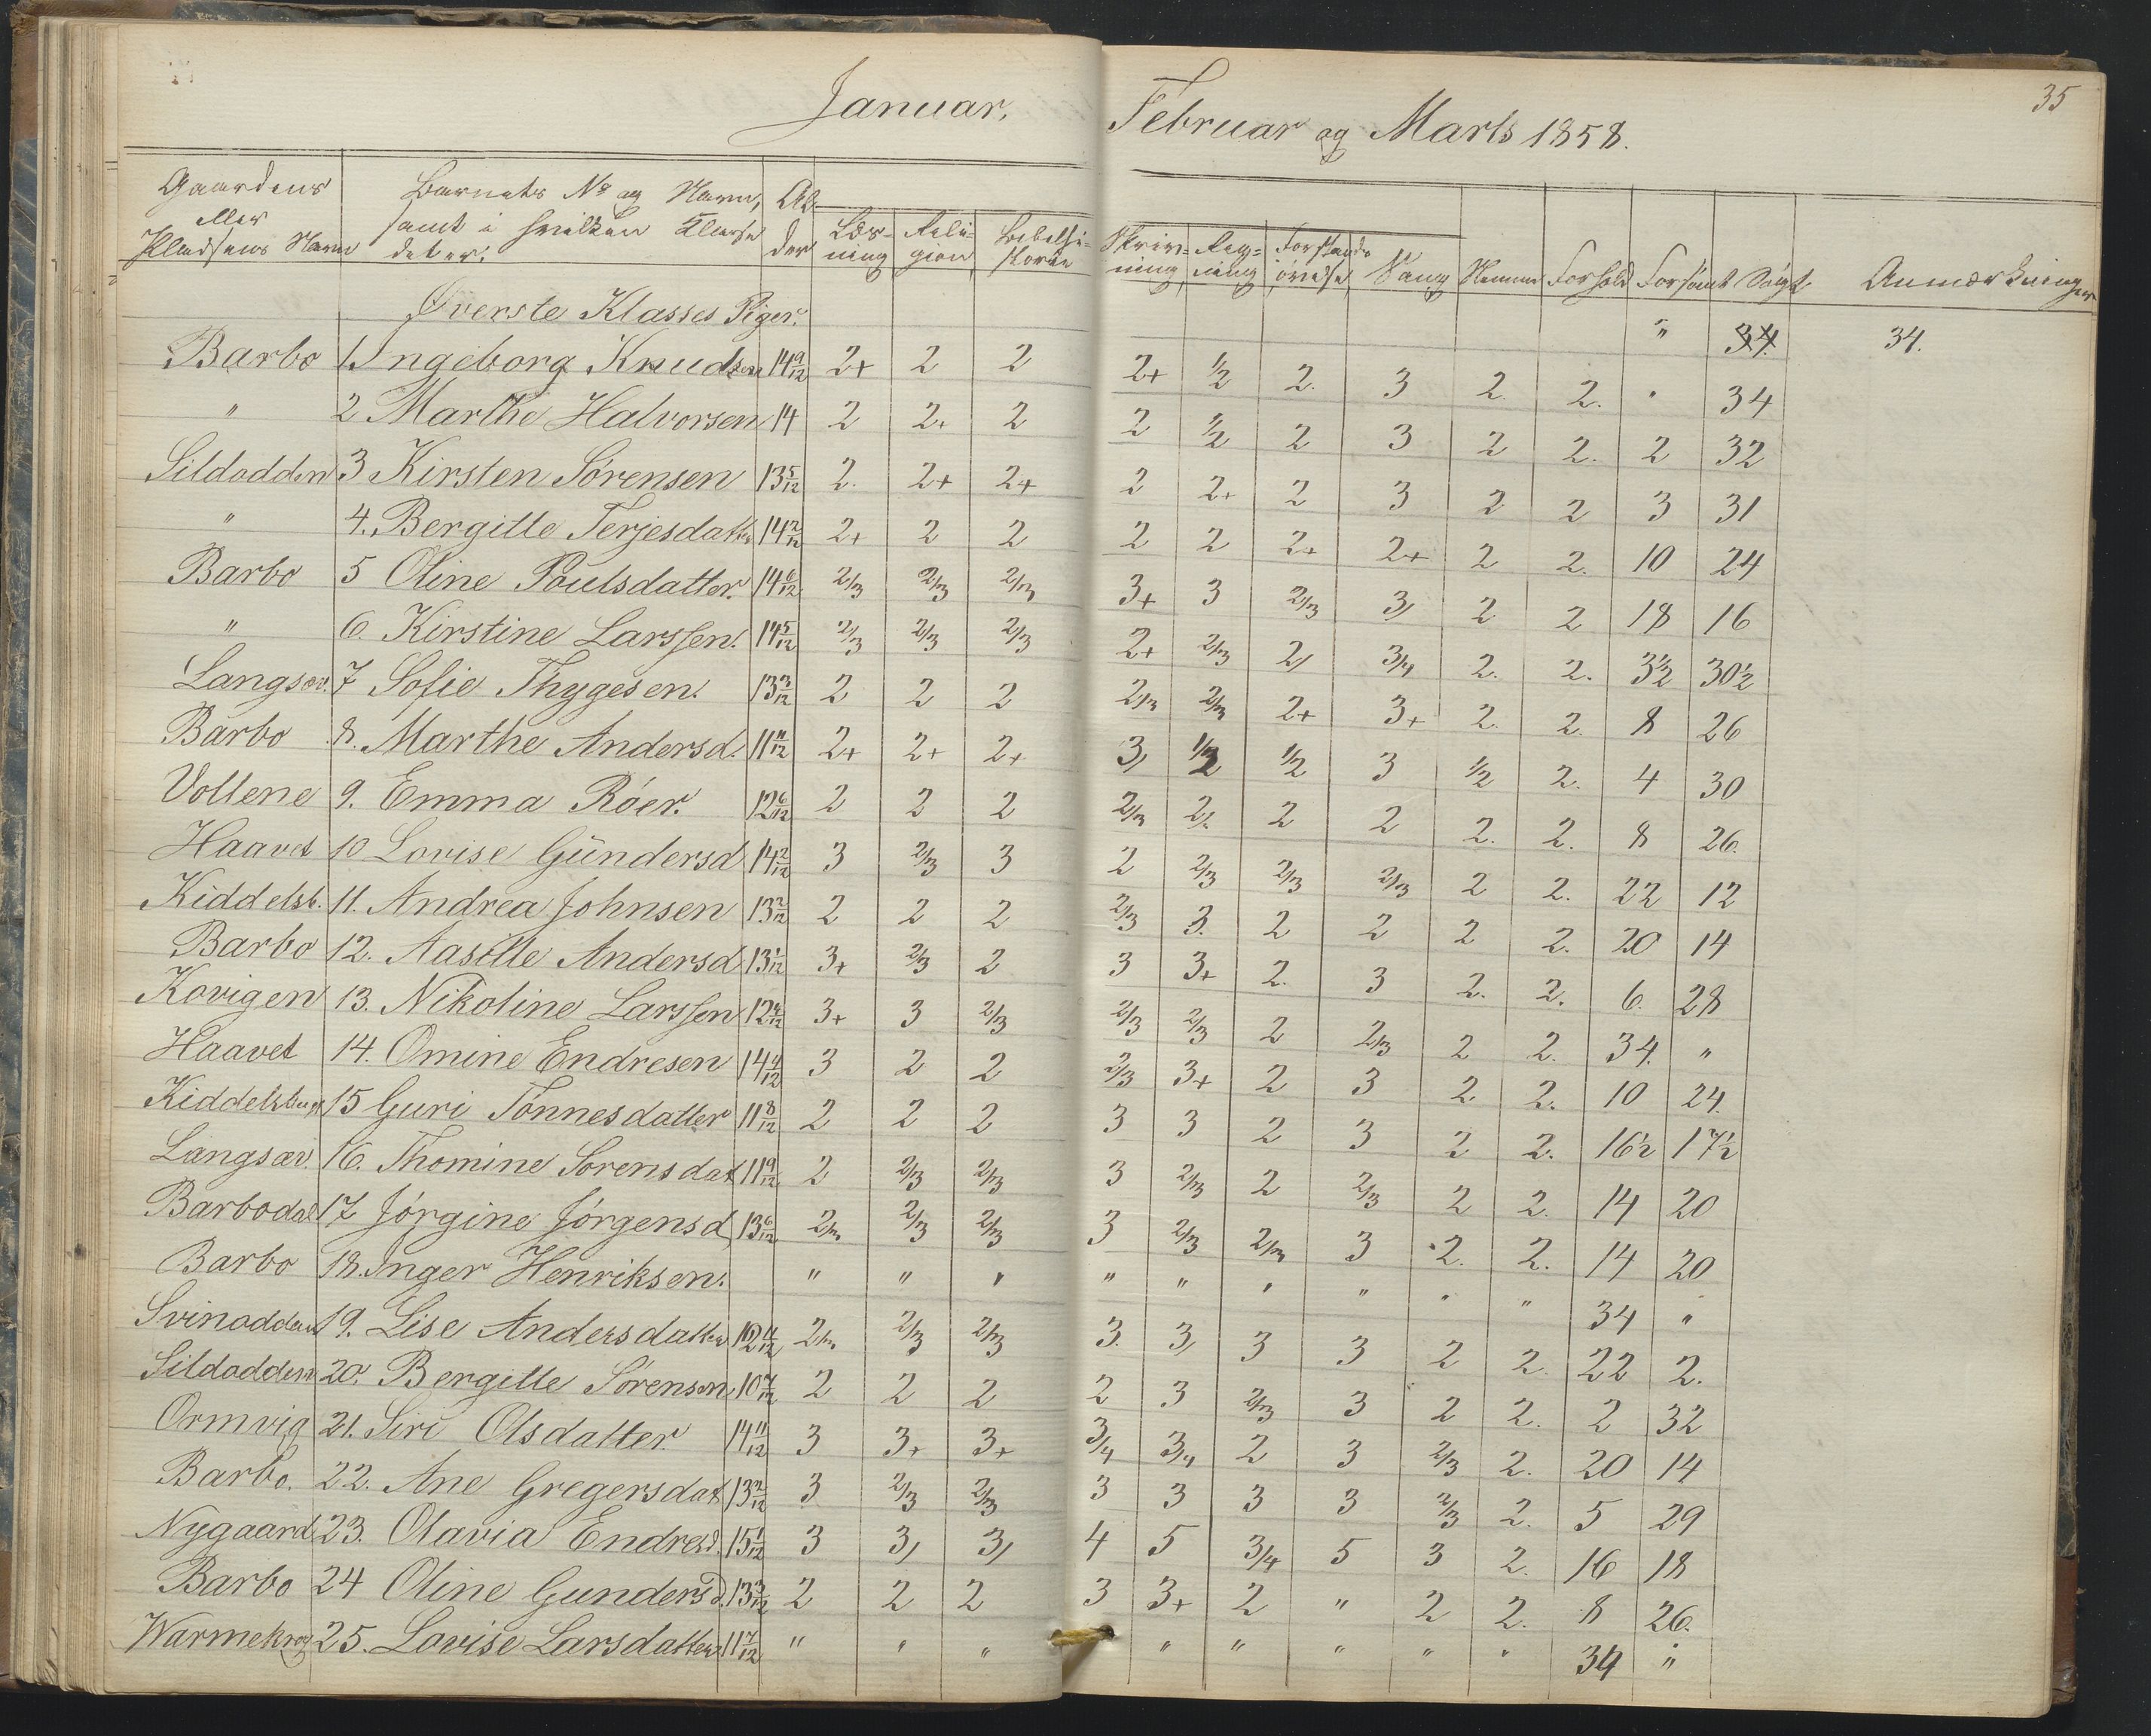 Januar, Februar og Marts 1858. 35
Gaardens eller Pladsens Navn | Barnets No og Navn, samt i hvilken Klasse det er. | Alder | Læsning | Religion | Bibelhistorie | Skrivning | Regning | Forstandsøvelse | Sang | Nemme | Forhold | Forsømt | Søgt | Anmærkninger
Øverste Klasses Piger. " 34 34.
Barbo 1. Ingeborg Knudsen 14 9/12 2+ 2 2 2+ 1/2 2. 3 2. 2. " 34
" 2 Marthe Halvorsen 14 2 2+ 2 2 1/2 2 3 2 2. 2 32
Sildodden 3 Kirsten Sørensen 13 5/12 2. 2+ 2+ 2 2+ 2 3 2 2 3 31
" 4. Bergitte Terjesdatter 14 2/12 2+ 2 2 2 2 2+ 2+ 2 2. 10 24
Barbo 5 Oline Poulsdatter. 14 6/12 2/3 2/3 2/3 3+ 3 2/3 3/ 2 2 18 16
" 6. Kirstine Larssen. 14 5/12 2/3 2/3 2/3 2+ 2/3 2/ 3/4 2. 2. 3 1/2 30 1/2
Langsæv. 7 Sofie Thygesen. 13 3/12 2 2 2 2/3 2/3 2+ 3+ 2. 2. 8 26
Barbo 8. Marthe Andersd. 11 11/12 2+ 2+ 2+ 3/ 1/2 1/2 3 1/2 2. 4 30
Vollene 9. Emma Röer. 12 6/12 2 2 2 2/3 2/. 2 2 2. 2. 8 26.
Haavet 10 Lovise Gündersd 14 2/12 3 2/3 3 2 2/3 2/3 2/3 2 2. 22 12
Kiddelsb. 11. Andrea Johnsen 13 2/12 2 2 2 2/3 3. 2 2 2 2. 20 14
Barbo 12. Aasille Andersd 13 1/12 3+ 2/3 2 3 3+ 2. 3 2. 2. 6. 28
Kovigen 13. Nikoline Larssen 12 4/12 3+ 3 2/3 2/3 2/3 2 2/3 2 2. 34. "
Haavet 14. Omine Endresen 14 4/12 3 2 2 2/3 3+ 2 3 2 2. 10 24.
15 Guri Tönnesdatter 11 8/12 2 2 2 3 3 2 3 2 2. 16 1/2 17 1/2
Langsæv. 16. Thomine Sorensdat 11 9/12 2 2/3 2/3 3 2/3 2 2/3 2 2. 14 20
Barbodal 17 Jörgine Jörgensd. 13 6/12 2/3 2/3 2/3 3 2/3 2/3 3 2. 2. 14 20
Barbo 18. Inger Henriksen. " " " " " " " " " 34 "
Svinodden 19. Lise Andersdatter 2/3 2/3 2/3 3. 3/ 3 3 2 2. 22 2.
Sildodden 20. Bergitte Sörensen 10 7/12 2 2 2 2 3 2/3 3 2 2. 2 32
Ormvig 21. Siri Olsdatter. 14 11/12 3 3+ 3+ 3/4 3/4 2 3 2/3 2. 20 14
Barbo. 22. Ane Gregersdat 13 2/12 3 2/3 2/3 3 3 3 3 2/3 2. 5 29
Nygaard 23. Olavia Endresd. 15 1/12 3 3/ 3/ 4 5 3/4 5 3 2. 16 18
Barbo 24 Oline Gundersd. 13 3/12 2 2 2 3 3+ 2 " 2 2. 8 26.
Warmekrog 25. Lovise Larsdatter 11 7/12 " " " " " " " " 34 "